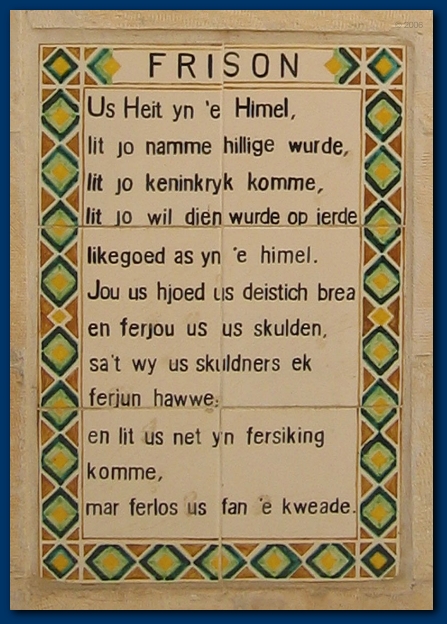 © 2006
FRISON
Us Heit yn 'e Himel,
lit jo namme hillige wurde,
lit jo keninkryk komme,
lit jo wil dien wurde op ierde
likegoed as yn 'e himel.
Jou us hjoed us deistich brea
en ferjou us us skulden,
sa't wy us skuldners ek
ferjun hawwe;
en lit us net yn fersiking
komme,
mar ferlos us fan 'e kweade.